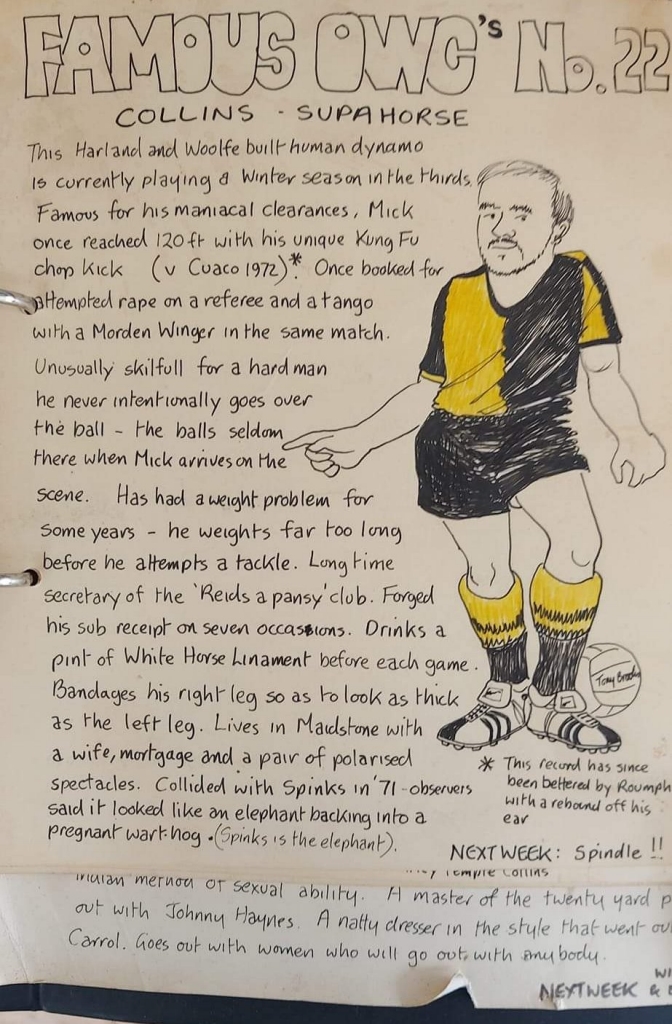 FAMOUS OWC's No. 22
COLLINS - SUPAHORSE
This Harland and Woolfe built human dynamo
is currently playing a Winter season in the thirds.
Famous for his maniacal clearances, Mick
once reached 120 ft with his unique Kung Fu
chop kick (v Cuaco 1972)*. Once booked for
attempted rape on a referee and a tango
with a Morden Winger in the same match.
Unusually skilfull for a hard man
he never intentionally goes over
the ball - the balls seldom
there when Mick arrives on the
scene. Has had a weight problem for
some years - he weights far too long
before he attempts a tackle. Long time
secretary of the 'Reids a pansy' club. Forged
his sub receipt on seven occassions. Drinks a
pint of White Horse Linament before each game.
Bandages his right leg so as to look as thick
as the left leg. Lives in Maidstone with
a wife, mortgage and a pair of polarised
spectacles. Collided with Spinks in '71 - observers
said it looked like an elephant backing into a
pregnant wart hog. (Spinks is the elephant).
Tony Brooks
* This record has since
been bettered by Roumph
with a rebound off his
ear
NEXT WEEK: Spindle!!
Temple Collins
Indian method of sexual ability. A master of the twenty yard p
out with Johnny Haynes. A natty dresser in the style that went ou
Carrol. Goes out with women who will go out with anybody.
NEXT WEEK &